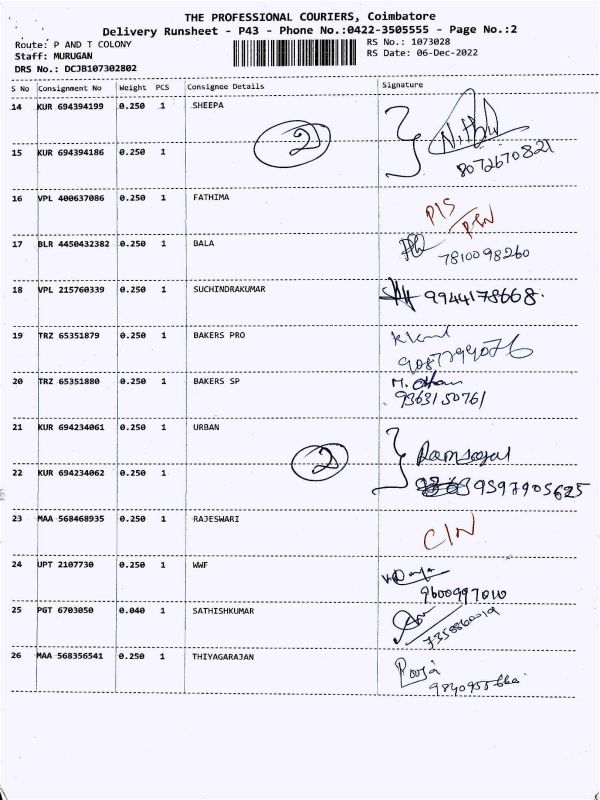 THE PROFESSIONAL COURIERS, Coimbatore
Delivery Runsheet - P43 - Phone No.:0422-3505555 - Page No.:2
Route: P AND T COLONY
Staff: MURUGAN
DRS No.: DCJB107302802
RS No.: 1073028
RS Date: 06-Dec-2022
S No Consignment No Weight PCS Consignee Details Signature
14 KUR 694394199 0.250 1 SHEEPA
2
15 KUR 694394186 0.250 1
8072670821
16 VPL 400637086 0.250 1 FATHIMA
17 BLR 4450432382 0.250 1 BALA
7810098260
18 VPL 215760339 0.250 1 SUCHINDRAKUMAR 9944178668.
19 TRZ 65351879 0.250 1 BAKERS PRO
9087799076
20 TRZ 65351880 0.250 1 BAKERS SP
9363150761
21 KUR 694234061 0.250 1 URBAN
2
22 KUR 694234062 0.250 1
9597905625
23 MAA 568468935 0.250 1 RAJESWARI
C/N
24 UPT 2107730 0.250 1 WWF
9600997010
25 PGT 6703050 0.040 1 SATHISHKUMAR
7358860019
26 MAA 568356541 0.250 1 THIYAGARAJAN
Pooja